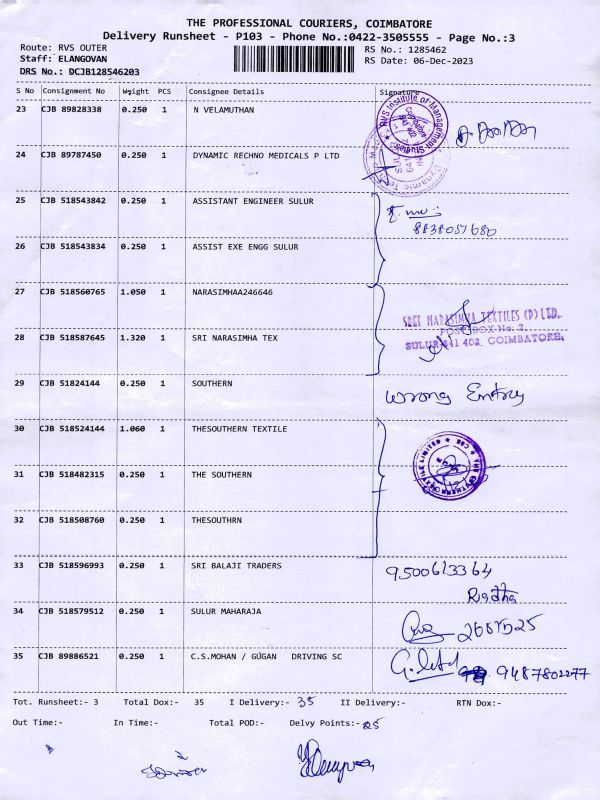 THE PROFESSIONAL COURIERS, COIMBATORE
Delivery Runsheet - P103 - Phone No.:0422-3505555 - Page No.:3
Route: RVS OUTER RS No.: 1285462
Staff: ELANGOVAN RS Date: 06-Dec-2023
DRS No.: DCJB128546203
S No Consignment No Weight PCS Consignee Details Signature
23 CJB 89828338 0.250 1 N VELAMUTHAN
RVS Institute of Management Studies
24 CJB 89787450 0.250 1 DYNAMIC RECHNO MEDICALS P LTD
25 CJB 518543842 0.250 1 ASSISTANT ENGINEER SULUR
26 CJB 518543834 0.250 1 ASSIST EXE ENGG SULUR
27 CJB 518560765 1.050 1 NARASIMHAA246646
SREE NARASIMHA TEXTILES (P) LTD.
POST BOX No. 2,
28 CJB 518587645 1.320 1 SRI NARASIMHA TEX SULUR 641 402. COIMBATORE.
29 CJB 51824144 0.250 1 SOUTHERN wrong Entry
30 CJB 518524144 1.060 1 THESOUTHERN TEXTILE
31 CJB 518482315 0.250 1 THE SOUTHERN
32 CJB 518508760 0.250 1 THESOUTHRN
33 CJB 518596993 0.250 1 SRI BALAJI TRADERS 9500613364
Radha
34 CJB 518579512 0.250 1 SULUR MAHARAJA 2687525
35 CJB 89886521 0.250 1 C.S.MOHAN / GUGAN DRIVING SC 9487802277
Tot. Runsheet:- 3 Total Dox:- 35 I Delivery:- 35 II Delivery:- RTN Dox:-
Out Time:- In Time:- Total POD:- Delvy Points:- 25